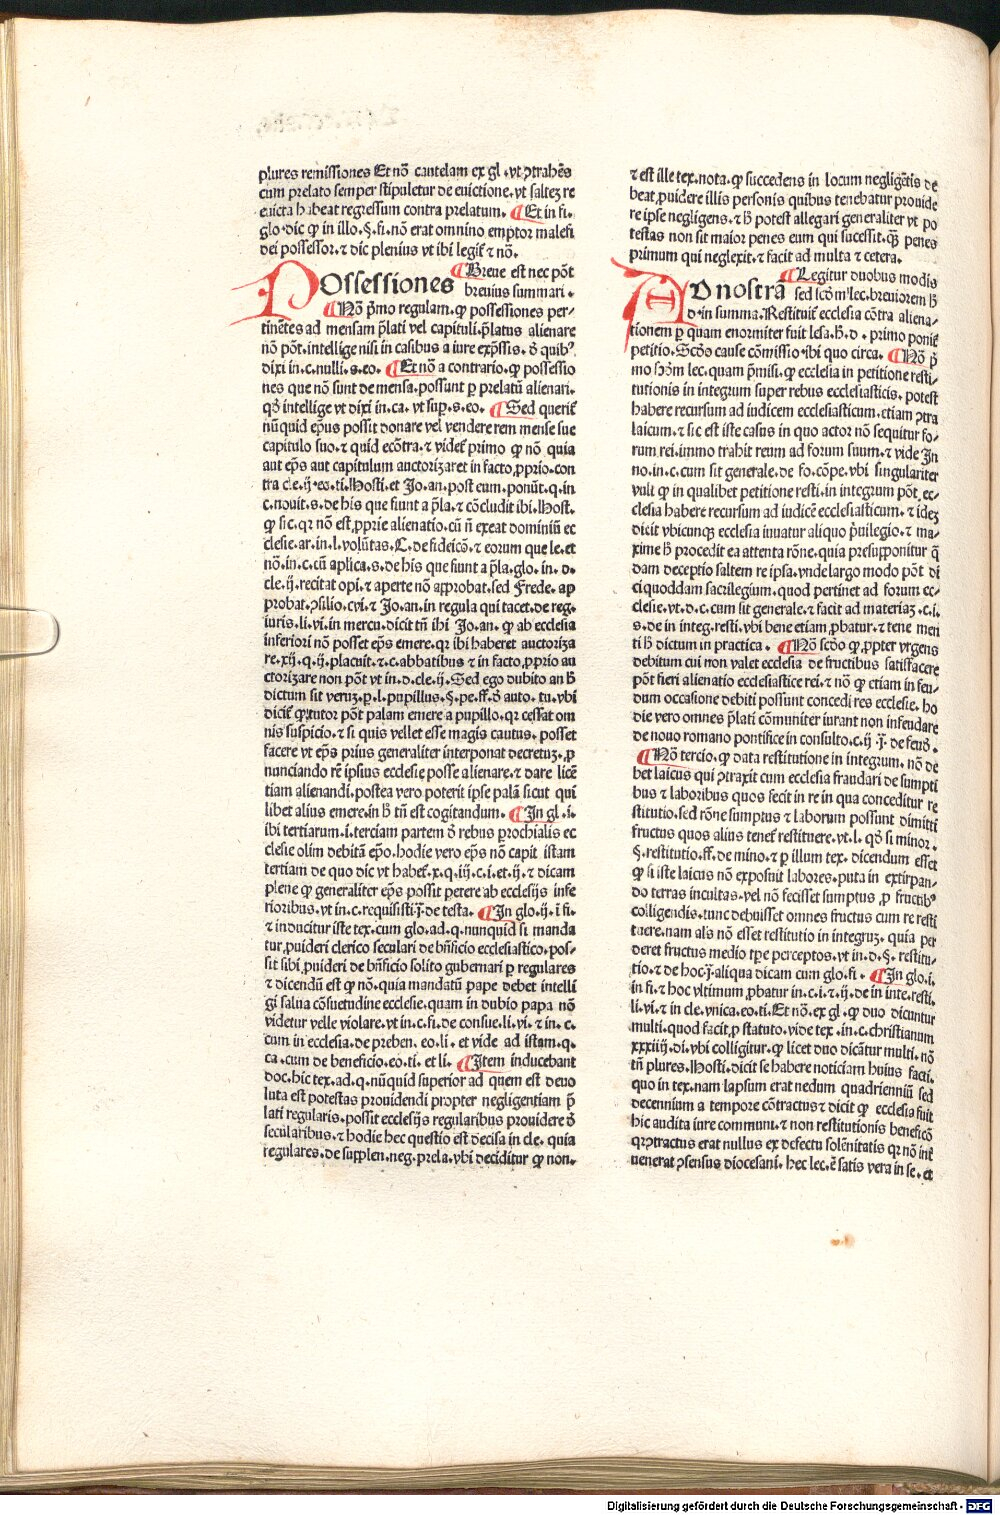 plures remissiones Et nō cautelam ex gl .vt ꝯtrahēs
cum prelato semper stipuletur de euictione.vt saltez re
euicta habeat regressum contra prelatum. ¶ Et in fi.
glo dic ꝙ in illo.§.fi.nō erat omnino emptor malefi
dei possessor.⁊ dic plenius vt ibi legiť ⁊ nō.
POssessiones ¶ Breue est nec pōt
breuius summari.
¶ Nō p̄mo regulam.ꝙ possessiones per-
tinētes ad mensam p̄lati vel capituli.p̄latus alienare
nō pōt.intellige nisi in casibus a iure exp̄ssis. ꝺ̄ quibꝰ
dixi in.c.nulli.s.eo. ¶ Et nō a contrario.ꝙ possessio
nes que nō sunt de mensa.possunt ꝑ prelatū alienari.
qꝺ̄ intellige vt dixi in.ca. vt suꝑ.s.eo. ¶ Sed queriť
nūquid ep̄us possit donare vel vendere rem mense sue
capitulo suo.⁊ quid ecōtra.⁊ videť primo ꝙ nō quia
aut ep̄s aut capitulum auctorizaret in facto ꝓprio.con
tra cle.ij.eo.ti.Hosti.et Jo.an.post eum.ponūt.q.in
c.nouit.s.de his que fiunt a p̄la.⁊ cōcludit ibi.Host.
ꝙ sic.qꝛ nō est ꝓprie alienatio.cū n̄ exeat dominiū ec
clesie.ar.in.l.volūtas.C.de fideicō.⁊ eorum que le.et
nō.in.c.cū aplica.s.de his que fiunt a p̄la.glo.in. d.
cle.ij.recitat opi.⁊ aperte nō approbat.sed Frede. ap
probat ꝯsilio.cvi.⁊ Jo.an.in regula qui tacet.de reg.
iuris.li.vi.in mercu.dicit tn̄ ibi Jo.an. ꝙ ab ecclesia
inferiori nō posset ep̄s emere.qꝛ ibi haberet auctoriza
re.xij.q.ij.placuit.⁊.c.abbatibus ⁊ in facto ꝓprio au
ctorizare non pōt vt in.d.cle.ij.Sed ego dubito an ħ
dictum sit veruꝫ.ꝑ.l.pupillus.§.pe.ff.ꝺ̄ aucto.tu.vbi
diciť ꝙ tutor pōt palam emere a pupillo.qꝛ cessat om
nis suspicio.⁊ si quis vellet esse magis cautus. posset
facere vt ep̄s prius generaliter interponat decretuꝫ. ꝓ
nunciando rē ipsius ecclesie posse alienare.⁊ dare licē
tiam alienandi.postea vero poterit ipse palā sicut qui
libet alius emere.in ħ tn̄ est cogitandum. ¶ In gl .i.
ibi tertiarum.i.terciam partem ꝺ̄ rebus ꝑrochialis ec
clesie olim debitā ep̄o.hodie vero ep̄s nō capit istam
tertiam de quo dic vt habeť.x.q.iij.c.i.et.ij.⁊ dicam
plene ꝙ generaliter ep̄s possit petere ab ecclesijs infe
rioribus.vt in.c.requisisti.ī.de testa. ¶ In glo.ij. ī fi.
⁊ inducitur iste tex.cum glo.ad.q.nunquid si manda
tur ꝓuideri clerico seculari de bn̄ficio ecclesiastico.pos-
sit sibi ꝓuideri de bn̄ficio solito gubernari ꝑ regulares
⁊ dicendū est ꝙ nō.quia mandatū pape debet intelli
gi salua cōsuetudine ecclesie.quam in dubio papa nō
videtur velle violare.vt in.c.fi.de consue.li.vi.⁊ in.c.
cum in ecclesia.de preben. eo.li. et vide ad istam.q.
ca.cum de beneficio.eo.ti. et li. ¶ Item inducebant
doc.hic tex.ad.q.nūquid superior ad quem est deuo
luta est potestas prouidendi propter negligentiam p̄
lati regularis.possit ecclesijs regularibus prouidere ꝺ̄
secularibus.⁊ hodie hec questio est decisa in cle. quia
regulares.de supplen.neg.prela.vbi deciditur ꝙ non.
⁊ est ille tex.nota.ꝙ succedens in locum negligētis de
beat ꝓuidere illis personis quibus tenebatur prouide
re ipse negligens.⁊ ħ potest allegari generaliter vt po
testas non sit maior penes eum qui sucessit.qᷓꝫ penes
primum qui neglexit.⁊ facit ad multa ⁊ cetera.
AD nostrā ¶ Legitur duobus modis
sed scd̄m lec.breuiorem ħ
d.in summa.Restituiť ecclesia cōtra aliena-
tionem ꝑ quam enormiter fuit lesa.h.d. primo poniť
petitio.Scd̄o cause cōmissio ibi quo circa. ¶ Nō p̄
mo scd̄m lec.quam p̄misi.ꝙ ecclesia in petitione resti-
tutionis in integrum super rebus ecclesiasticis. potest
habere recursum ad iudicem ecclesiasticum.etiam ꝯtra
laicum.⁊ sic est iste casus in quo actor nō sequitur fo-
rum rei.immo trahit reum ad forum suum.⁊ vide In
no.in.c.cum sit generale.de fo.cōpe.vbi singulariter
vult ꝙ in qualibet petitione resti.in integrum pōt ec-
clesia habere recursum ad iudicē ecclesiasticum.⁊ ideꝫ
dicit vbicunqꝫ ecclesia iuuatur aliquo p̄uilegio.⁊ ma-
xime ħ procedit ea attenta rōne.quia presupponitur q̄
dam deceptio saltem re ipsa.vnde largo modo pōt di
ci quoddam sacrilegium.quod pertinet ad forum ec-
clesie.vt.d.c.cum sit generale.⁊ facit ad materiaꝫ.c.i.
s.de in integ.resti.vbi bene etiam ꝓbatur.⁊ tene men
ti ħ dictum in practica. ¶ Nō scd̄o ꝙ ꝓpter vrgens
debitum cui non valet ecclesia de fructibus satisfacere
pōt fieri alienatio ecclesiastice rei.⁊ nō ꝙ etiam in feu-
dum occasione debiti possunt concedi res ecclesie. ho
die vero omnes p̄lati cōmuniter iurant non infeudare
de nouo romano pontifice in consulto.c.ij.ī.de feuꝺ̄.
¶ Nō tercio.ꝙ data restitutione in integrum. nō de
bet laicus qui ꝯtraxit cum ecclesia fraudari de sumpti
bus ⁊ laboribus quos fecit in re in qua conceditur re
stitutio.sed rōne sumptus ⁊ laborum possunt dimitti
fructus quos alius teneť restituere.vt.l. qꝺ̄ si minor.
§.restitutio.ff.de mino.⁊ ꝑ illum tex. dicendum esset
ꝙ si iste laicus nō exposuit labores.puta in extirpan-
do terras incultas.vel nō fecisset sumptus ꝓ fructibꝰ
colligendis.tunc debuisset omnes fructus cum re resti
tuere.nam als nō esset restitutio in integruꝫ. quia per
deret fructus medio tp̄e perceptos.vt in.d.§. restitu-
tio.⁊ de hoc.ī.aliqua dicam cum glo.fi. ¶ In glo.i.
in fi.⁊ hoc vltimum ꝓbatur in.c.i.⁊.ij.de in inte.resti.
li.vi.⁊ in cle.vnica.eo.ti.Et nō.ex gl .ꝙ duo dicuntur
multi.quod facit ꝓ statuto.vide tex .in.c.christianum
xxxiiij.di.vbi colligitur.ꝙ licet duo dicātur multi. nō
tn̄ plures.Hosti.dicit se habere noticiam huius facti.
quo in tex.nam lapsum erat nedum quadrienniū sed
decennium a tempore cōtractus ⁊ dicit ꝙ ecclesia fuit
hic audita iure communi.⁊ non restitutionis beneficō
qꝛ ꝯtractus erat nullus ex defectu solēnitatis qꝛ nō int̄
uenerat ꝯsensus diocesani. hec lec.ē satis vera in se. et
Digitalisierung gefördert durch die Deutsche Forschungsgemeinschaft - DFG